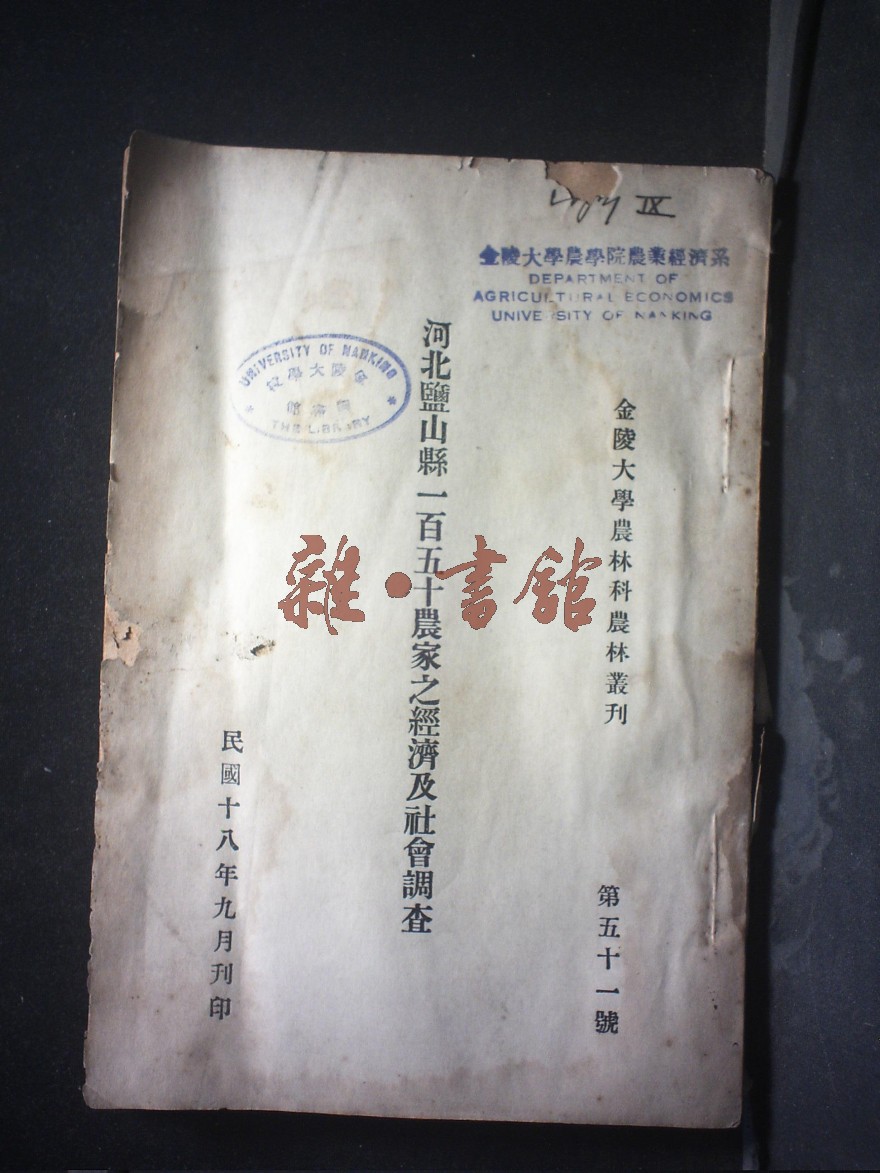 IX
金陵大學農學院農業經濟系
DEPARTMENT OF
AGRICULTURAL ECONOMICS
UNIVERSITY OF NANKING
金陵大學農林科農林叢刊
第五十一號
河北鹽山縣一百五十農家之經濟及社會調查
UNIVERSITY OF NANKING
金陵大學校
圖書館
THE LIBRARY
民國十八年九月刊印
雜·書館